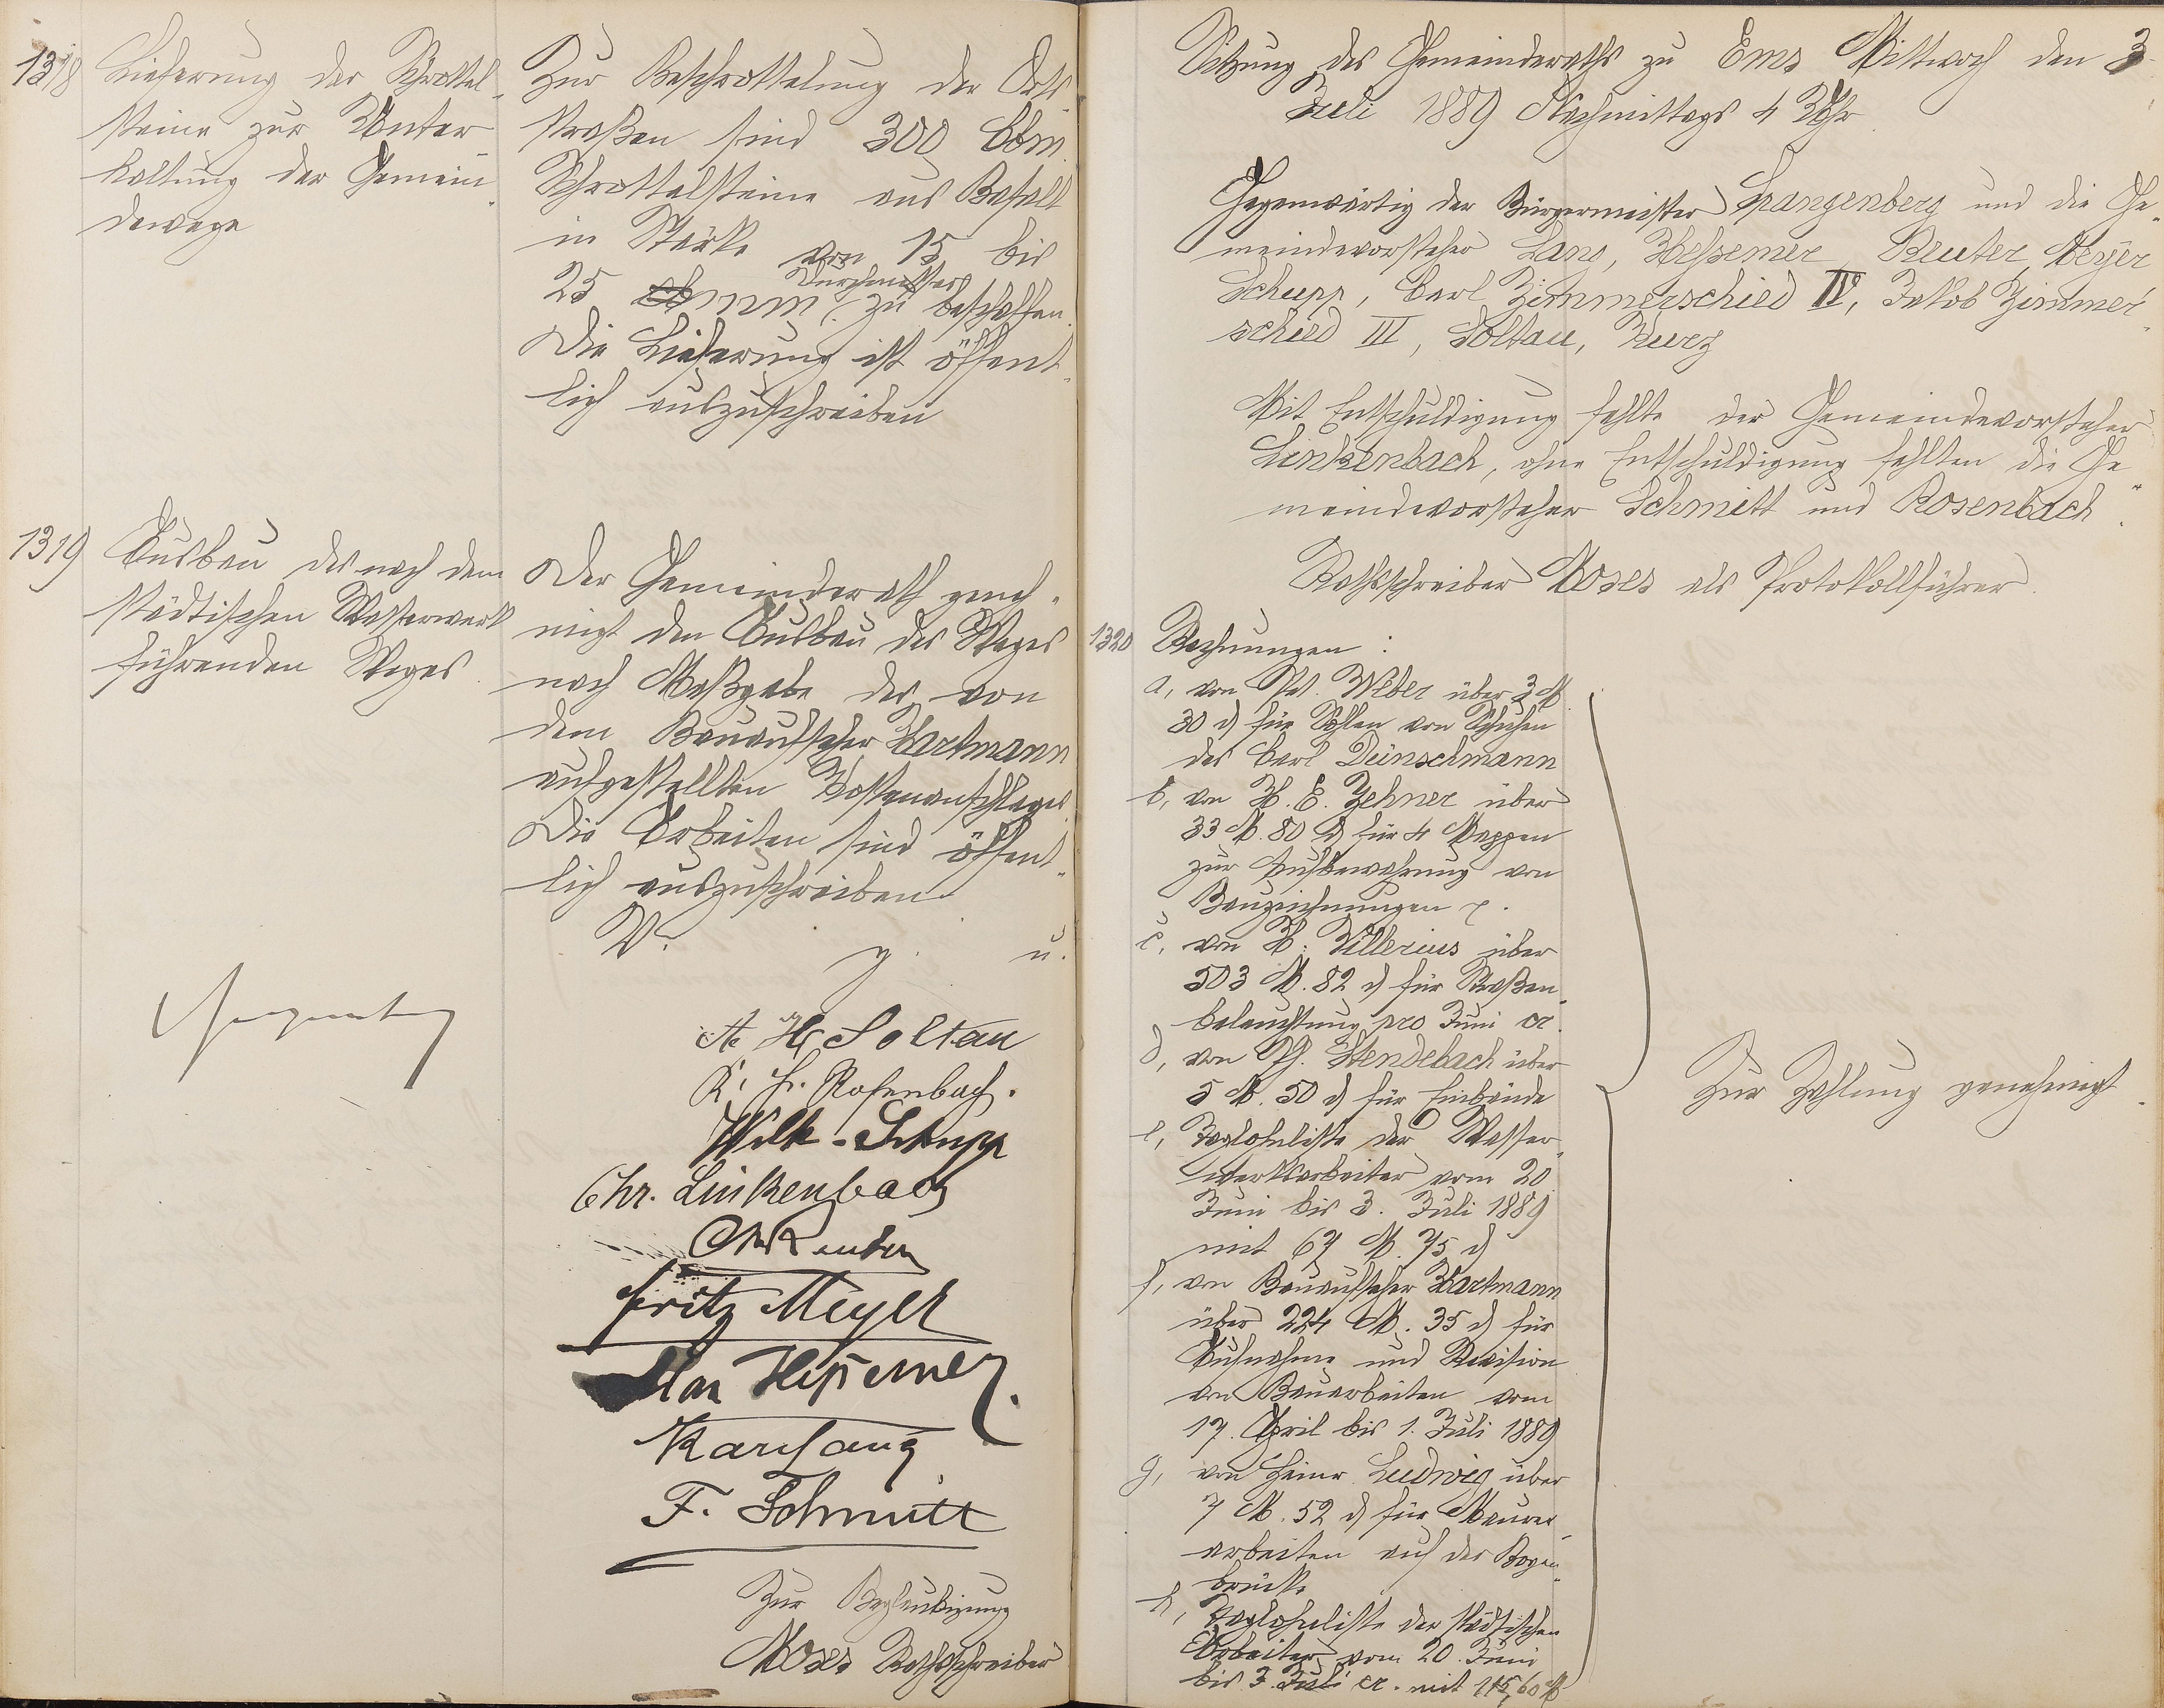 1318
Lieferung der Schrottel-
steine zur Unter-
haltung der Gemein-
dewege
Zur Beschrottelung der Orts-
straßen sind 300 Cbm
Schrottelsteine aus Basalt
in Stärke von 15 bis
25 mm Durchmesser zu beschaffen.
Die Lieferung ist öffent-
lich auszuschreiben
1319
Ausbau des nach dem
städtischen Wasserwerk
führenden Weges.
Der Gemeinderath geneh-
migt den Ausbau des Weges
nach Maßgabe des von
dem Bauaufseher Hartmann
aufgestellten Kostenanschlages.
Die Arbeiten sind öffent-
lich auszuschreiben.
V. g. u.
Spangenberg
A H Soltau
K. F. Rosenbach.
Wilh. Schupp
Chr. Linkenbach
Reuter
Fritz Meyer
Heßemer
Karl Lang
F. Schmitt
Zur Beglaubigung
Moses Rathsschreiber
Sitzung des Gemeinderaths zu Ems Mittwoch den 3.
Juli 1889 Nachmittags 4 Uhr
Gegenwärtig der Bürgermeister Spangenberg und die Ge-
meindevorsteher Lang, Heßemer, Reuter, Meyer
Schupp, Carl Zimmerschied IV, Jakob Zimmer-
schied III, Soltau, Kurz
Mit Entschuldigung fehlte der Gemeindevorsteher
Linkenbach, ohne Entschuldigung fehlten die Ge-
meindevorsteher Schmitt und Rosenbach.
Rathsschreiber Moses als Protokollführer.
1320 Rechnungen:
a, von Weber über 3 M
30 d für Sohlen von Schuhen
des Carl Deinschmann
b, von H. E. Zehner über
33 M. 80 d für 4 Mappen
zur Aufbewahrung von
Bauzeichnungen p.
c, von H. Villerius über
503 M. 82 d für Straßen-
beleuchtung pro Juni cr.
d, von Ph. Stendebach über
5 M. 50 d für Einbände
e, Taglohnliste der Wasser-
werksarbeiter vom 20
Juni bis 3. Juli 1889
mit 67 M. 75 d
f, von Bauaufseher Hartmann
über 224 M. 35 d für
Aufnahme und Revision
von Bauarbeiten vom
17. April bis 1. Juli 1889
g, von Heinr. Ludwig über
7 M. 52 d für Maurer-
arbeiten auf der Bogen-
brücke
h, Taglohnliste der städtischen
Arbeiter vom 20. Juni
bis 3. Juli cr. mit 115,60 M
Zur Zahlung genehmigt.